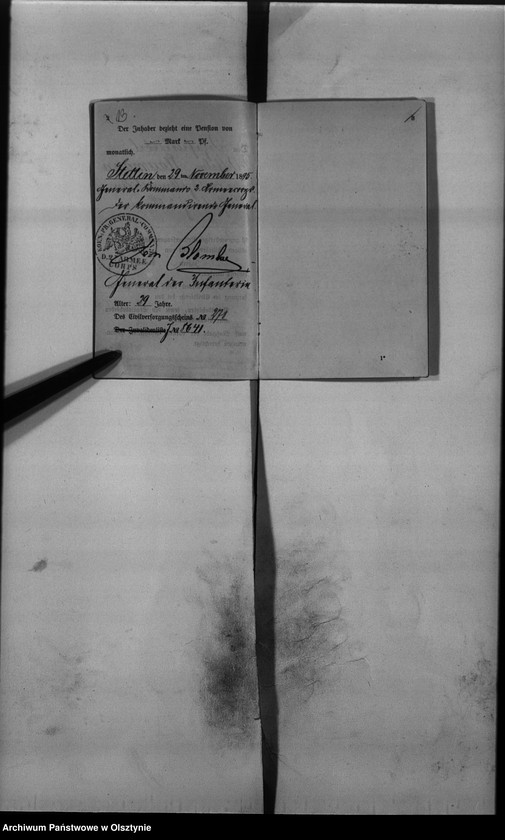 2
3
Der Inhaber bezieht eine Pension von
— Mark — Pf.
monatlich.
Stettin den 29 ten November 1895
General-Kommando 2. Armeecorps
Der Kommandirende General
KÖN. PR. GENERAL-COMMANDO
D. 2. ARMEE
CORPS
von Blomberg
General der Infanterie
Alter: 29 Jahre.
Des Civilversorgungsscheins №
Der Invalidenliste J №
1*
Archiwum Państwowe w Olsztynie